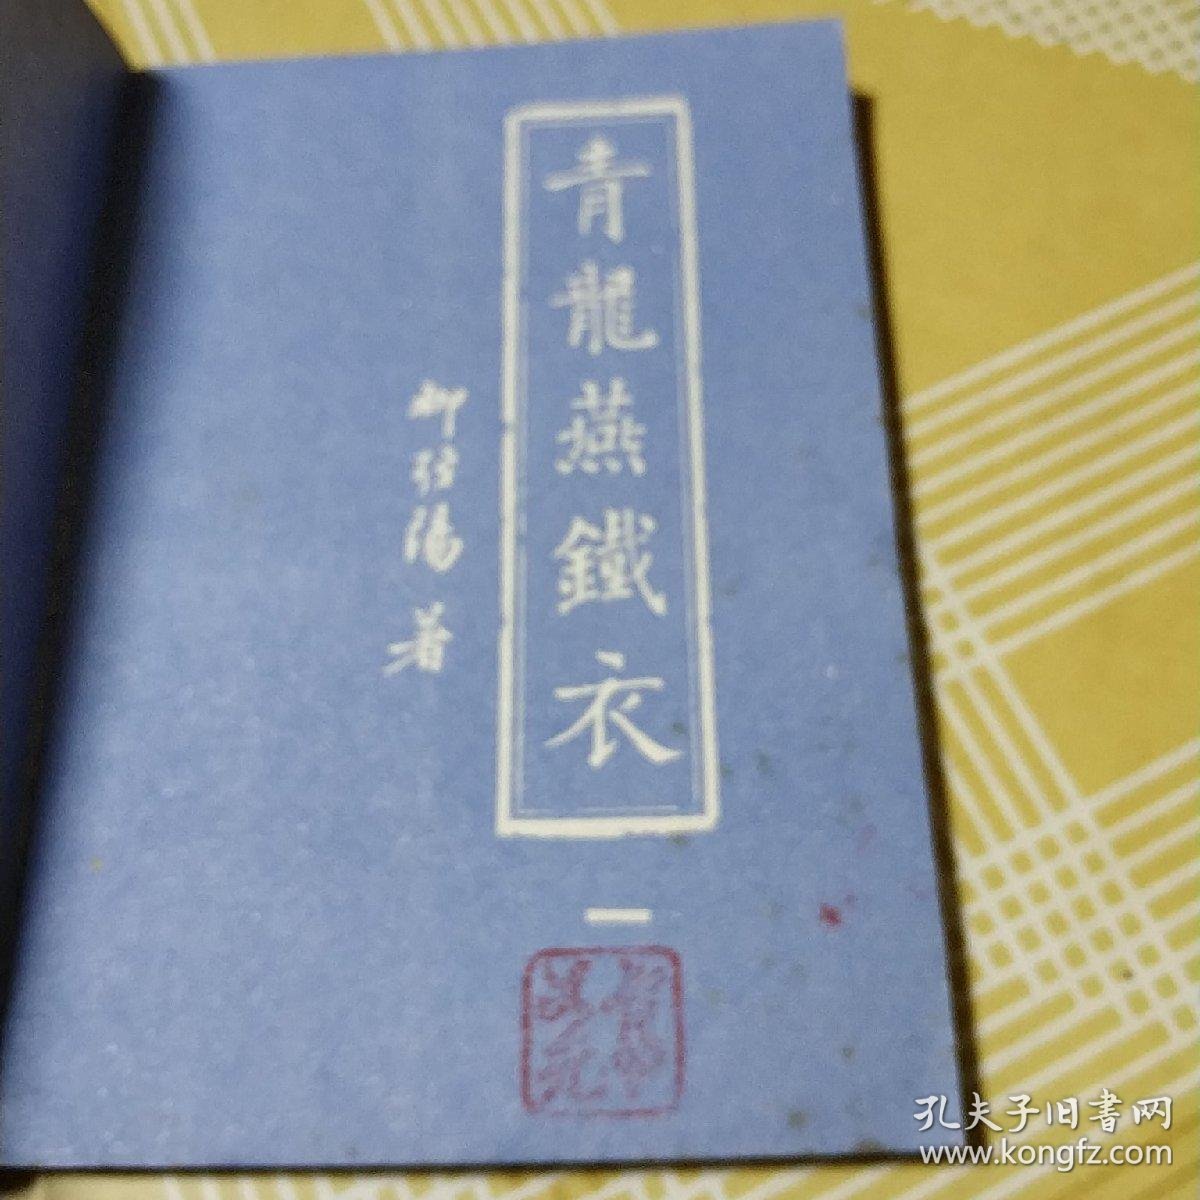 青龍燕鐵衣
柳残陽 著
一
孔夫子旧書网
www.kongfz.com